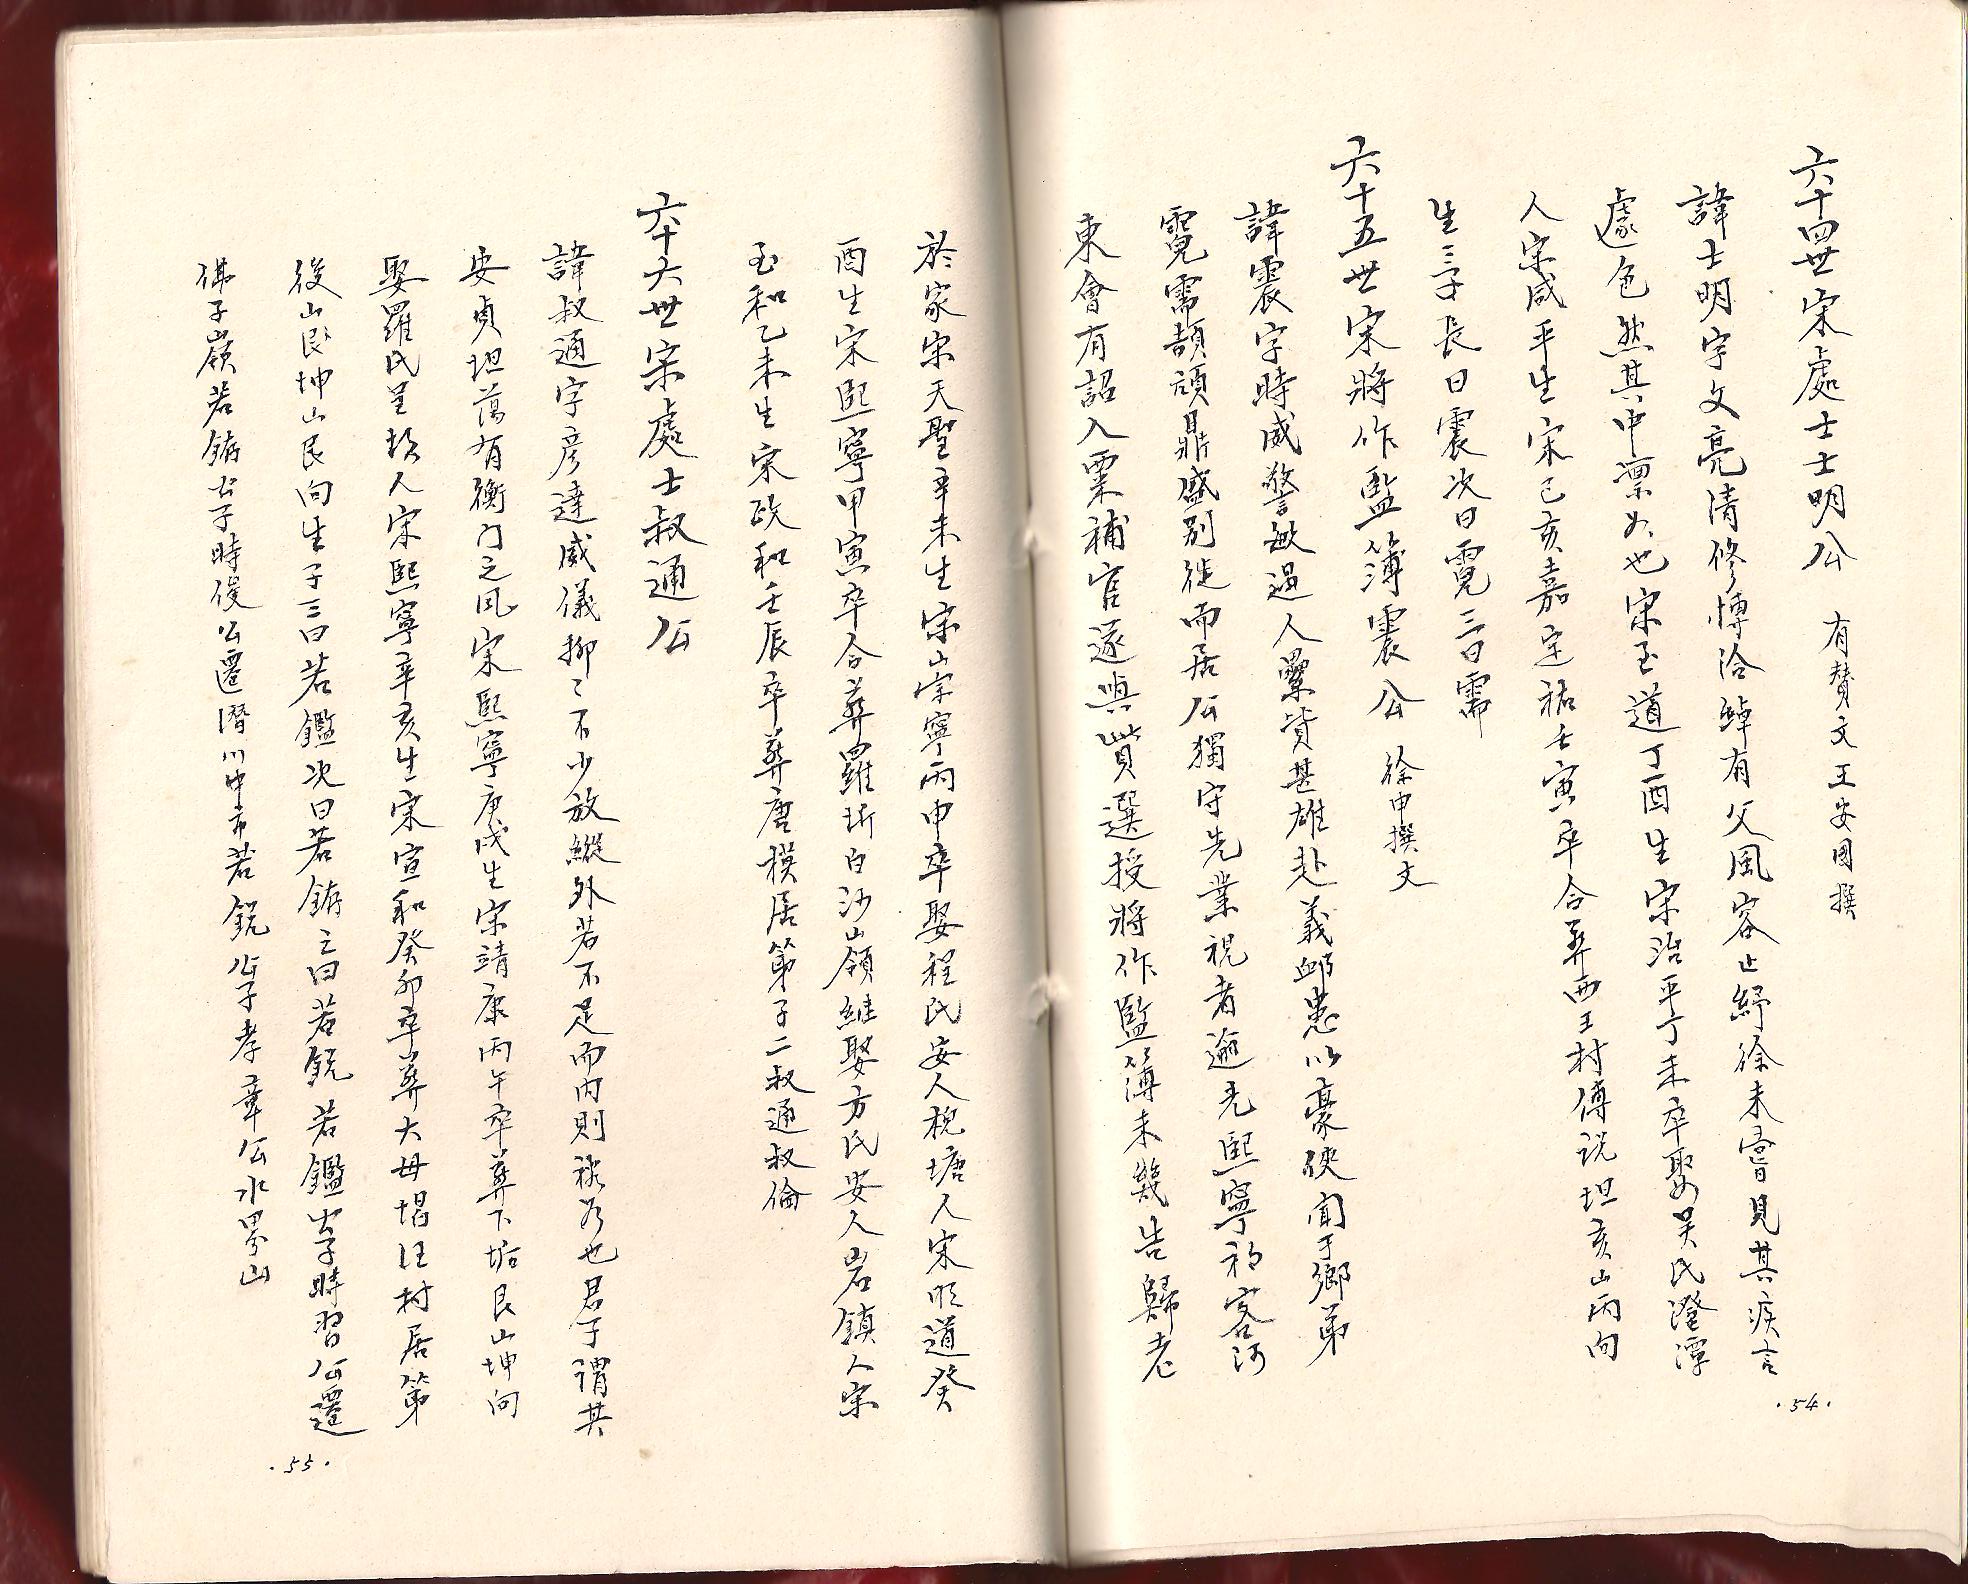 六十四世宋處士士明公 有贊文王安國撰
諱士明字文亮清修博洽綽有父風容止紓徐未嘗見其疾言
遽色然其中凛如也宋至道丁酉生宋治平丁未卒娶吳氏澄潭
人宋咸平生宋己亥嘉定祐壬寅卒合葬西王村傅説坦亥山丙向
生三子長曰震次曰霓三曰需
六十五世宋將作監簿震公 徐申撰文
諱震字時威警敏過人纍貲甚雄赴義卹患以豪俠聞于鄉弟
霓需頡頏鼎盛别徙而居公獨守先業視者逾光熙寧初客河
東會有詔入粟補官遂與貲選授將作監簿未幾告歸老
·54·
於家宋天聖辛未生宋崇寧丙申卒娶程氏安人槐塘人宋明道癸
酉生宋熙寧甲寅卒合葬羅圻白沙山嶺継娶方氏安人岩鎮人宋
至和乙未生宋政和壬辰卒葬唐模居第子二叔通叔倫
六十六世宋處士叔通公
諱叔通字彦達威儀抑〻不少放縱外若不足而内則裕如也君子謂其
安貞坦蕩有衡门之风宋熙寧庚戌生宋靖康丙午卒葬下垢艮山坤向
娶羅氏呈坎人宋熙寧辛亥生宋宣和癸卯卒葬大母堨汪村居第
後山艮坤山艮向生子三曰若鑑次曰若鏑三曰若鋭若鑑字子時習公遷
佛子嶺若鏑公子時俊公遷潛川中市若鋭公子孝章公水界山
·55·